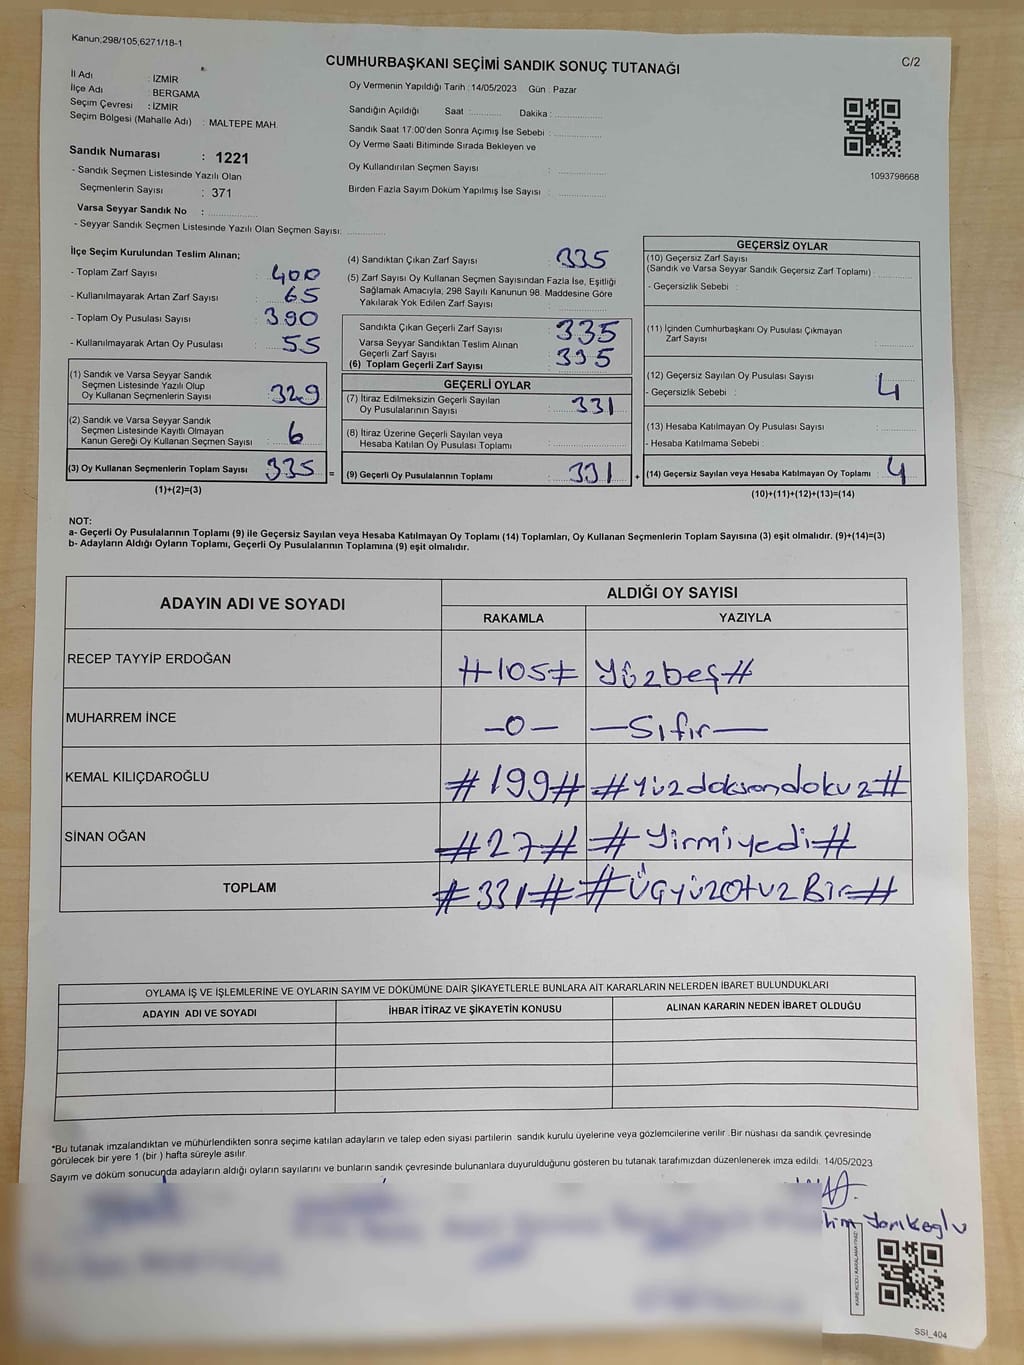 Kanun;298/105;6271/18-1
CUMHURBAŞKANI SEÇİMİ SANDIK SONUÇ TUTANAĞI
C/2
İl Adı : İZMİR
İlçe Adı : BERGAMA
Seçim Çevresi : İZMİR
Seçim Bölgesi (Mahalle Adı) : MALTEPE MAH.
Sandık Numarası : 1221
- Sandık Seçmen Listesinde Yazılı Olan
Seçmenlerin Sayısı : 371
Varsa Seyyar Sandık No :
- Seyyar Sandık Seçmen Listesinde Yazılı Olan Seçmen Sayısı:
Oy Vermenin Yapıldığı Tarih : 14/05/2023 Gün : Pazar
Sandığın Açıldığı Saat : Dakika :
Sandık Saat 17:00'den Sonra Açımış İse Sebebi :
Oy Verme Saati Bitiminde Sırada Bekleyen ve
Oy Kullandırılan Seçmen Sayısı :
Birden Fazla Sayım Döküm Yapılmış İse Sayısı :
1093798668
İlçe Seçim Kurulundan Teslim Alınan;
- Toplam Zarf Sayısı : 400
- Kullanılmayarak Artan Zarf Sayısı : 65
- Toplam Oy Pusulası Sayısı : 390
- Kullanılmayarak Artan Oy Pusulası : 55
(1) Sandık ve Varsa Seyyar Sandık
Seçmen Listesinde Yazılı Olup
Oy Kullanan Seçmenlerin Sayısı : 329
(2) Sandık ve Varsa Seyyar Sandık
Seçmen Listesinde Kayıtlı Olmayan
Kanun Gereği Oy Kullanan Seçmen Sayısı : 6
(3) Oy Kullanan Seçmenlerin Toplam Sayısı : 335
(1)+(2)=(3)
=
(4) Sandıktan Çıkan Zarf Sayısı : 335
(5) Zarf Sayısı Oy Kullanan Seçmen Sayısından Fazla İse, Eşitliği
Sağlamak Amacıyla, 298 Sayılı Kanunun 98. Maddesine Göre
Yakılarak Yok Edilen Zarf Sayısı :
Sandıkta Çıkan Geçerli Zarf Sayısı : 335
Varsa Seyyar Sandıktan Teslim Alınan
Geçerli Zarf Sayısı :
(6) Toplam Geçerli Zarf Sayısı : 335
GEÇERLİ OYLAR
(7) İtiraz Edilmeksizin Geçerli Sayılan
Oy Pusulalarının Sayısı : 331
(8) İtiraz Üzerine Geçerli Sayılan veya
Hesaba Katılan Oy Pusulası Toplamı :
(9) Geçerli Oy Pusulalarının Toplamı : 331
+
GEÇERSİZ OYLAR
(10) Geçersiz Zarf Sayısı
(Sandık ve Varsa Seyyar Sandık Geçersiz Zarf Toplamı) :
- Geçersizlik Sebebi :
(11) İçinden Cumhurbaşkanı Oy Pusulası Çıkmayan
Zarf Sayısı :
(12) Geçersiz Sayılan Oy Pusulası Sayısı : 4
- Geçersizlik Sebebi :
(13) Hesaba Katılmayan Oy Pusulası Sayısı :
- Hesaba Katılmama Sebebi :
(14) Geçersiz Sayılan veya Hesaba Katılmayan Oy Toplamı : 4
(10)+(11)+(12)+(13)=(14)
NOT:
a- Geçerli Oy Pusulalarının Toplamı (9) ile Geçersiz Sayılan veya Hesaba Katılmayan Oy Toplamı (14) Toplamları, Oy Kullanan Seçmenlerin Toplam Sayısına (3) eşit olmalıdır. (9)+(14)=(3)
b- Adayların Aldığı Oyların Toplamı, Geçerli Oy Pusulalarının Toplamına (9) eşit olmalıdır.
ADAYIN ADI VE SOYADI
ALDIĞI OY SAYISI
RAKAMLA YAZIYLA
RECEP TAYYİP ERDOĞAN #105# Yüzbeş#
MUHARREM İNCE -0- -Sıfır-
KEMAL KILIÇDAROĞLU #199# #Yüzdoksandokuz#
SİNAN OĞAN #27# #Yirmiyedi#
TOPLAM #331# #ÜçyüzOtuzBir#
OYLAMA İŞ VE İŞLEMLERİNE VE OYLARIN SAYIM VE DÖKÜMÜNE DAİR ŞİKAYETLERLE BUNLARA AİT KARARLARIN NELERDEN İBARET BULUNDUKLARI
ADAYIN ADI VE SOYADI İHBAR İTİRAZ VE ŞİKAYETİN KONUSU ALINAN KARARIN NEDEN İBARET OLDUĞU
*Bu tutanak imzalandıktan ve mühürlendikten sonra seçime katılan adayların ve talep eden siyasi partilerin sandık kurulu üyelerine veya gözlemcilerine verilir .Bir nüshası da sandık çevresinde
görülecek bir yere 1 (bir ) hafta süreyle asılır.
Sayım ve döküm sonucunda adayların aldığı oyların sayılarını ve bunların sandık çevresinde bulunanlara duyurulduğunu gösteren bu tutanak tarafımızdan düzenlenerek imza edildi. 14/05/2023
SSI_404